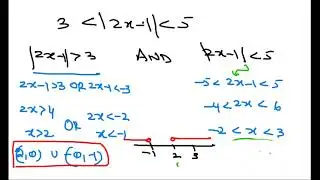 3 < |2x-1| < 5
|2x-1| > 3 AND |2x-1| < 5
2x-1>3 OR 2x-1<-3
-5 < 2x-1 < 5
2x>4 OR 2x<-2
-4 < 2x < 6
x>2 x<-1
-2 < x < 3
(2,∞) ∪ (-∞,-1)
-1 2 3